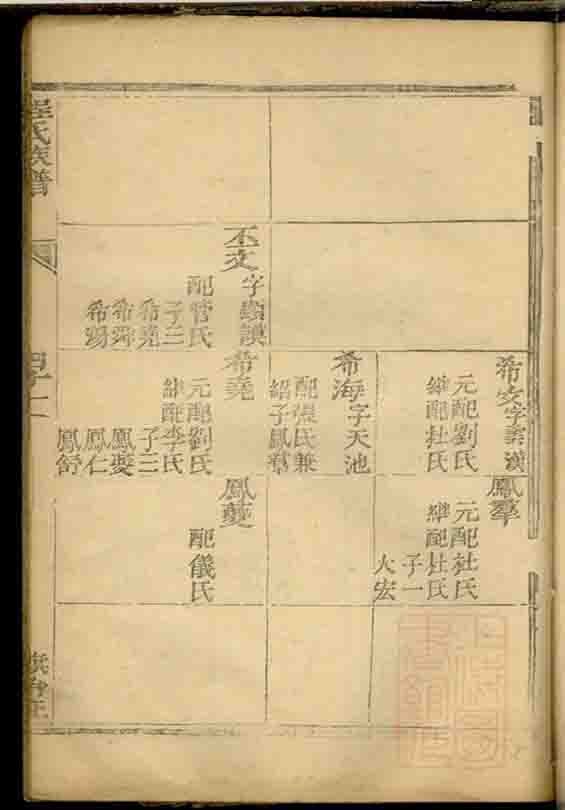 希安字
元配劉氏
繼配杜氏
鳳羣
元配杜氏
繼配杜氏
子一
大宏
希海字天池
配張氏兼
紹子鳳羣
丕文字顯謨
配管氏
子三
希堯
希舜
希湯
希堯
元配劉氏
繼配李氏
子三
鳳夔
鳳仁
鳳舒
鳳夔
配儀氏
程氏族譜